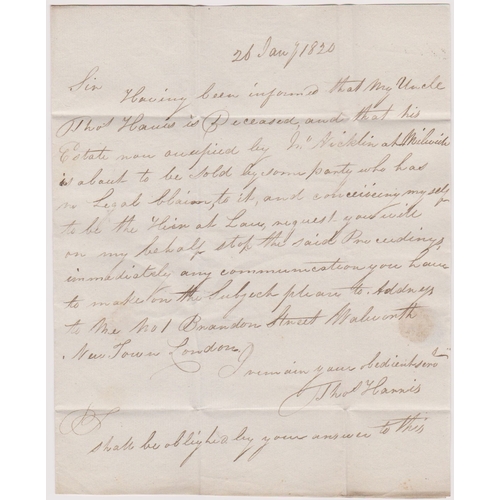 26 Jany 1820
Sir Having been informed that My Uncle
Thos Harris is Deceased, and that his
Estate now occupied by Mr Nicklin at Milwich
is about to be sold by som party who has
no Legal Claim, to it, and conceiving my self
to be the Heir at Law, request you will
on my behalf stop the said Proceedings
immediatele any communication you have
to make on the Subject please to Address
to Me No 1 Brandon Street Walworth
New Town London
I remain your obedient servt
Thos Harris
I
shall be oblighd by your answer to this